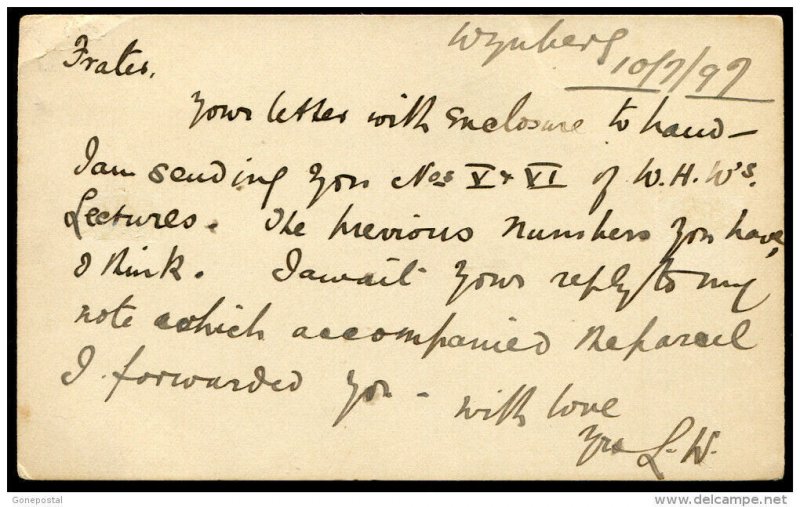 Wynberg
10/7/97
Frater.
Your letter with enclosure to hand –
I am sending you Nos V & VI of W.H.W's.
Lectures. The previous numbers you have,
I think. I await your reply to my
note which accompanied the parcel
I forwarded you –
with love
Yrs L. W.
Gonepostal
delcampe.net